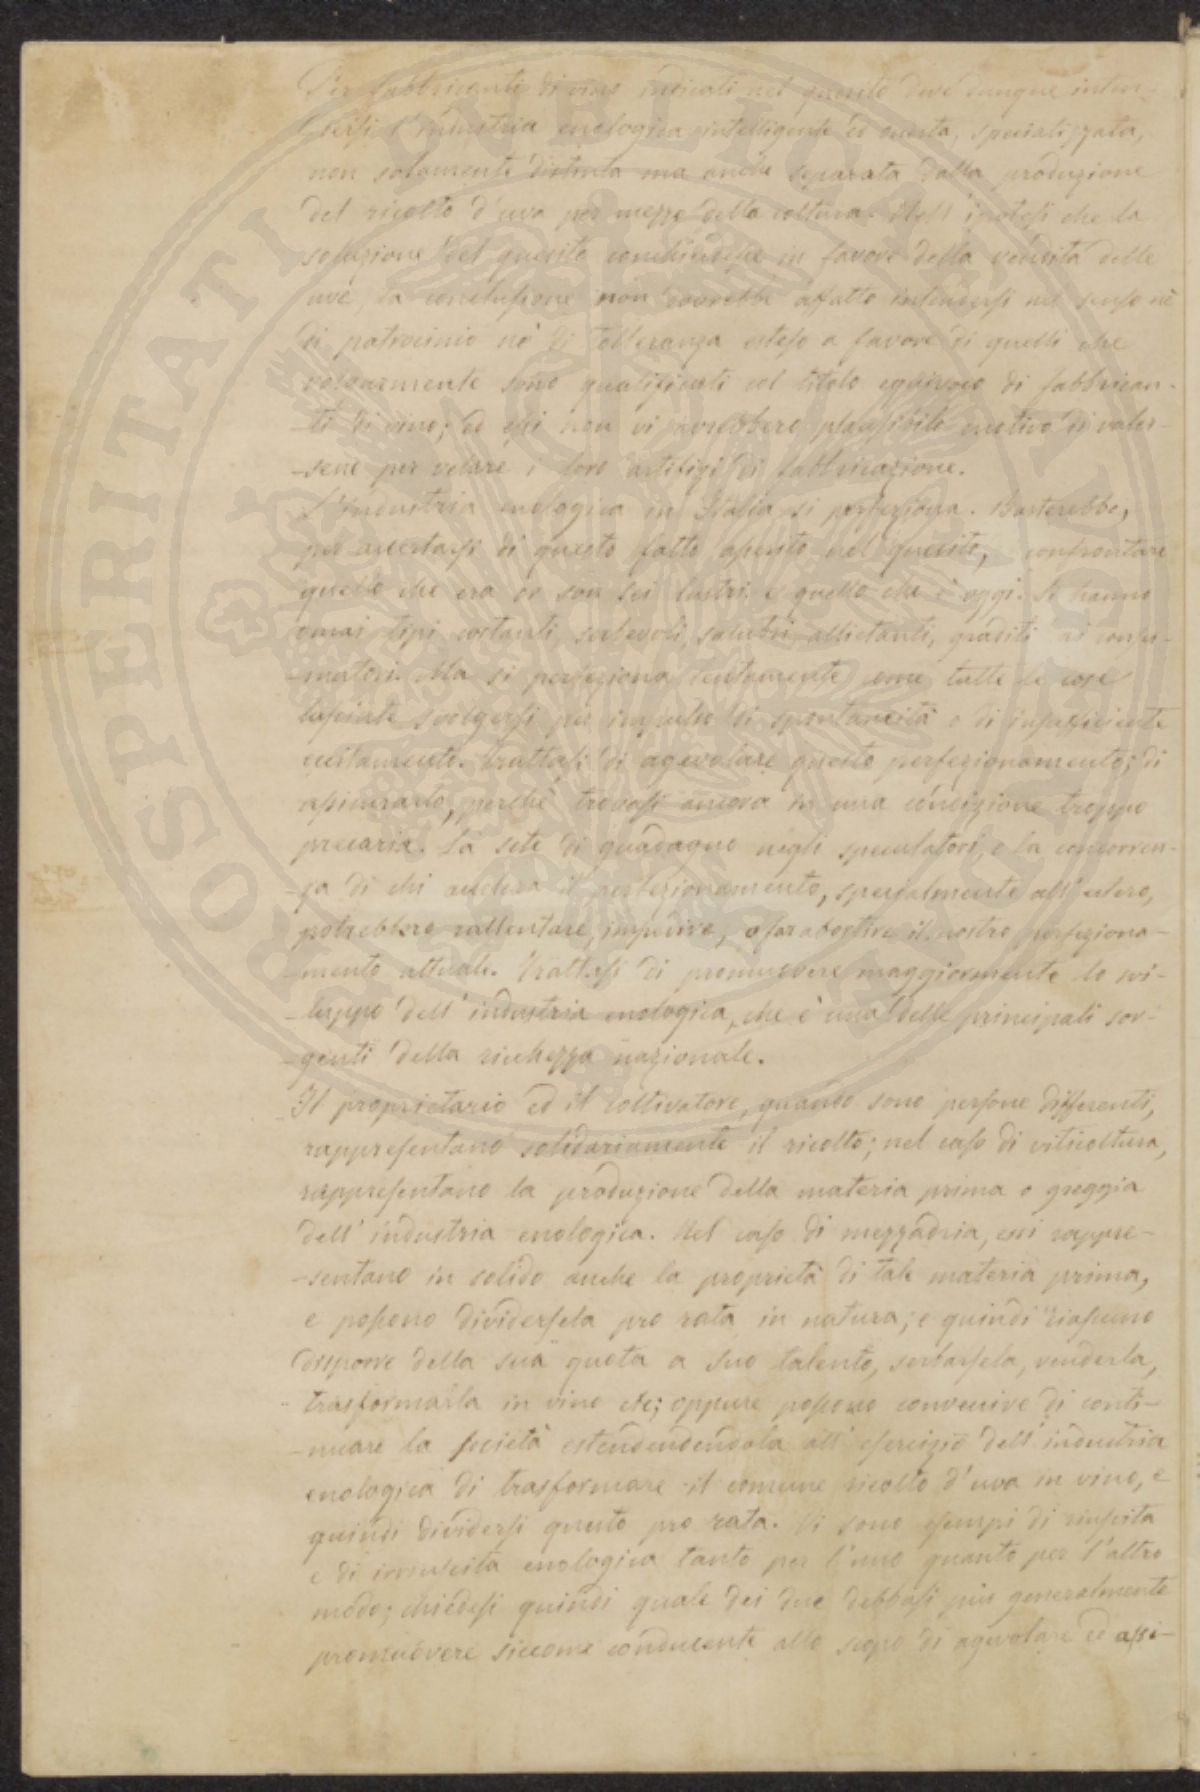 Per fabbricanti di vino indicati nel quesito deve dunque inten-
dersi l'industria enologica intelligente ed onesta, specializzata,
non solamente distinta ma anche separata dalla produzione
del ricolto d'uva per mezzo della coltura. Nell'ipotesi che la
soluzione del quesito conchiudesse in favore della vendita delle
uve, la conclusione non dovrebbe affatto intendersi nel senso nè
di patrocinio nè di tolleranza esteso a favore di quelli che
volgarmente sono qualificati col titolo equivoco di fabbrican-
-ti di vino; ed essi non vi avrebbero plausibile motivo di valer-
-sene per velare i loro artifizi di fabbricazione.
L'industria enologica in Italia si perfeziona. Basterebbe,
per accertarsi di questo fatto asserito nel quesito, confrontare
quello che era or son sei lustri e quello che è oggi. Si hanno
omai tipi costanti, serbevoli, salubri, allietanti, graditi ai consu-
-matori. Ma si perfeziona lentamente come tutte le cose
lasciate svolgersi per impulso di spontaneità o di insufficiente
eccitamento. Trattasi di agevolare questo perfezionamento; di
assicurarlo, perchè trovasi ancora in una condizione troppo
precaria. La sete di guadagno negli speculatori, e la concorren-
-za di chi accelera il perfezionamento, specialmente all'estero,
potrebbero rallentare, impedire, o far abortire il nostro perfeziona-
-mento attuale. Trattasi di promuovere maggiormente lo svi-
-luppo dell'industria enologica, che è una delle principali sor-
-genti della ricchezza nazionale.
Il proprietario ed il coltivatore, quando sono persone differenti,
rappresentano solidariamente il ricolto; nel caso di viticoltura,
rappresentano la produzione della materia prima o greggia
dell'industria enologica. Nel caso di mezzadria, essi rappre-
-sentano in solido anche la proprietà di tale materia prima,
e possono dividersela pro rata in natura; e quindi ciascuno
disporre della sua quota a suo talento, serbarsela, venderla,
trasformarla in vino etc; oppure possono convenire di conti-
-nuare la società estendendendola all'esercizio dell'industria
enologica di trasformare il comune ricolto d'uva in vino, e
quindi dividersi questo pro rata. Vi sono esempi di riuscita
e di inriuscita enologica tanto per l'uno quanto per l'altro
modo; chiedesi quindi quale dei due debbasi più generalmente
promuovere siccome conducente allo scopo di agevolare ed assi-